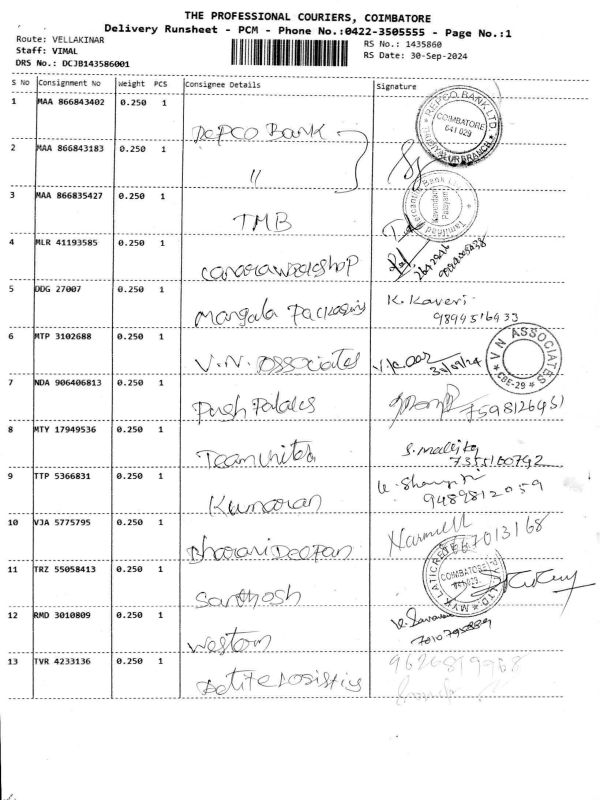 THE PROFESSIONAL COURIERS, COIMBATORE
Delivery Runsheet - PCM - Phone No.:0422-3505555 - Page No.:1
Route: VELLAKINAR
Staff: VIMAL
DRS No.: DCJB143586001
RS No.: 1435860
RS Date: 30-Sep-2024
S No Consignment No Weight PCS Consignee Details Signature
1 MAA 866843402 0.250 1 REPCO BANK
REPCO BANK LTD COIMBATORE 641 029 BRANCH
2 MAA 866843183 0.250 1 "
3 MAA 866835427 0.250 1 TMB
Tamilnad Mercantile Bank
4 MLR 41193585 0.250 1
5 DDG 27007 0.250 1 Mangala Packaging K. Kaveri
9894516933
6 MTP 3102688 0.250 1 V.N. Associates
VN ASSOCIATES * CBE-29 *
7 NDA 906406813 0.250 1
8 MTY 17949536 0.250 1 Teamunited
7355100792
9 TTP 5366831 0.250 1 Kumaran
9489812059
10 VJA 5775795 0.250 1 Bharani Deepan
11 TRZ 55058413 0.250 1 Santhosh
MYK LATICRETE COIMBATORE PVT. LTD
12 RMD 3010809 0.250 1 Western
13 TVR 4233136 0.250 1